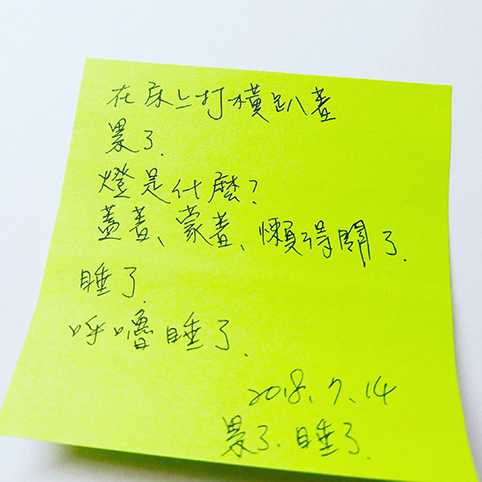 在床上打橫趴著
累了.
燈是什麼?
蓋著、蒙著、懶得關了.
睡了.
呼嚕睡了.
2018.7.14
累了.睡了.